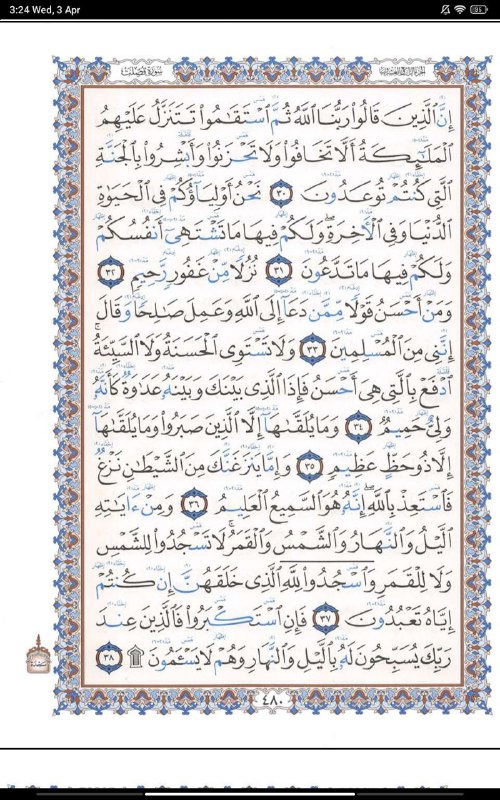 3:24 Wed, 3 Apr
سورة فصلت
إِنَّ ٱلَّذِينَ قَالُوا۟ رَبُّنَا ٱللَّهُ ثُمَّ ٱسْتَقَٰمُوا۟ تَتَنَزَّلُ عَلَيْهِمُ
ٱلْمَلَٰٓئِكَةُ أَلَّا تَخَافُوا۟ وَلَا تَحْزَنُوا۟ وَأَبْشِرُوا۟ بِٱلْجَنَّةِ
ٱلَّتِى كُنتُمْ تُوعَدُونَ ٣٠ نَحْنُ أَوْلِيَآؤُكُمْ فِى ٱلْحَيَوٰةِ
ٱلدُّنْيَا وَفِى ٱلْءَاخِرَةِ ۖ وَلَكُمْ فِيهَا مَا تَشْتَهِىٓ أَنفُسُكُمْ
وَلَكُمْ فِيهَا مَا تَدَّعُونَ ٣١ نُزُلًا مِّنْ غَفُورٍ رَّحِيمٍ ٣٢
وَمَنْ أَحْسَنُ قَوْلًا مِّمَّن دَعَآ إِلَى ٱللَّهِ وَعَمِلَ صَٰلِحًا وَقَالَ
إِنَّنِى مِنَ ٱلْمُسْلِمِينَ ٣٣ وَلَا تَسْتَوِى ٱلْحَسَنَةُ وَلَا ٱلسَّيِّئَةُ ۚ
ٱدْفَعْ بِٱلَّتِى هِىَ أَحْسَنُ فَإِذَا ٱلَّذِى بَيْنَكَ وَبَيْنَهُۥ عَدَٰوَةٌ كَأَنَّهُۥ
وَلِىٌّ حَمِيمٌ ٣٤ وَمَا يُلَقَّىٰهَآ إِلَّا ٱلَّذِينَ صَبَرُوا۟ وَمَا يُلَقَّىٰهَآ
إِلَّا ذُو حَظٍّ عَظِيمٍ ٣٥ وَإِمَّا يَنزَغَنَّكَ مِنَ ٱلشَّيْطَٰنِ نَزْغٌ
فَٱسْتَعِذْ بِٱللَّهِ ۖ إِنَّهُۥ هُوَ ٱلسَّمِيعُ ٱلْعَلِيمُ ٣٦ وَمِنْ ءَايَٰتِهِ
ٱلَّيْلُ وَٱلنَّهَارُ وَٱلشَّمْسُ وَٱلْقَمَرُ ۚ لَا تَسْجُدُوا۟ لِلشَّمْسِ
وَلَا لِلْقَمَرِ وَٱسْجُدُوا۟ لِلَّهِ ٱلَّذِى خَلَقَهُنَّ إِن كُنتُمْ
إِيَّاهُ تَعْبُدُونَ ٣٧ فَإِنِ ٱسْتَكْبَرُوا۟ فَٱلَّذِينَ عِندَ
رَبِّكَ يُسَبِّحُونَ لَهُۥ بِٱلَّيْلِ وَٱلنَّهَارِ وَهُمْ لَا يَسْـَٔمُونَ ۩ ٣٨
سجدة
٤٨٠